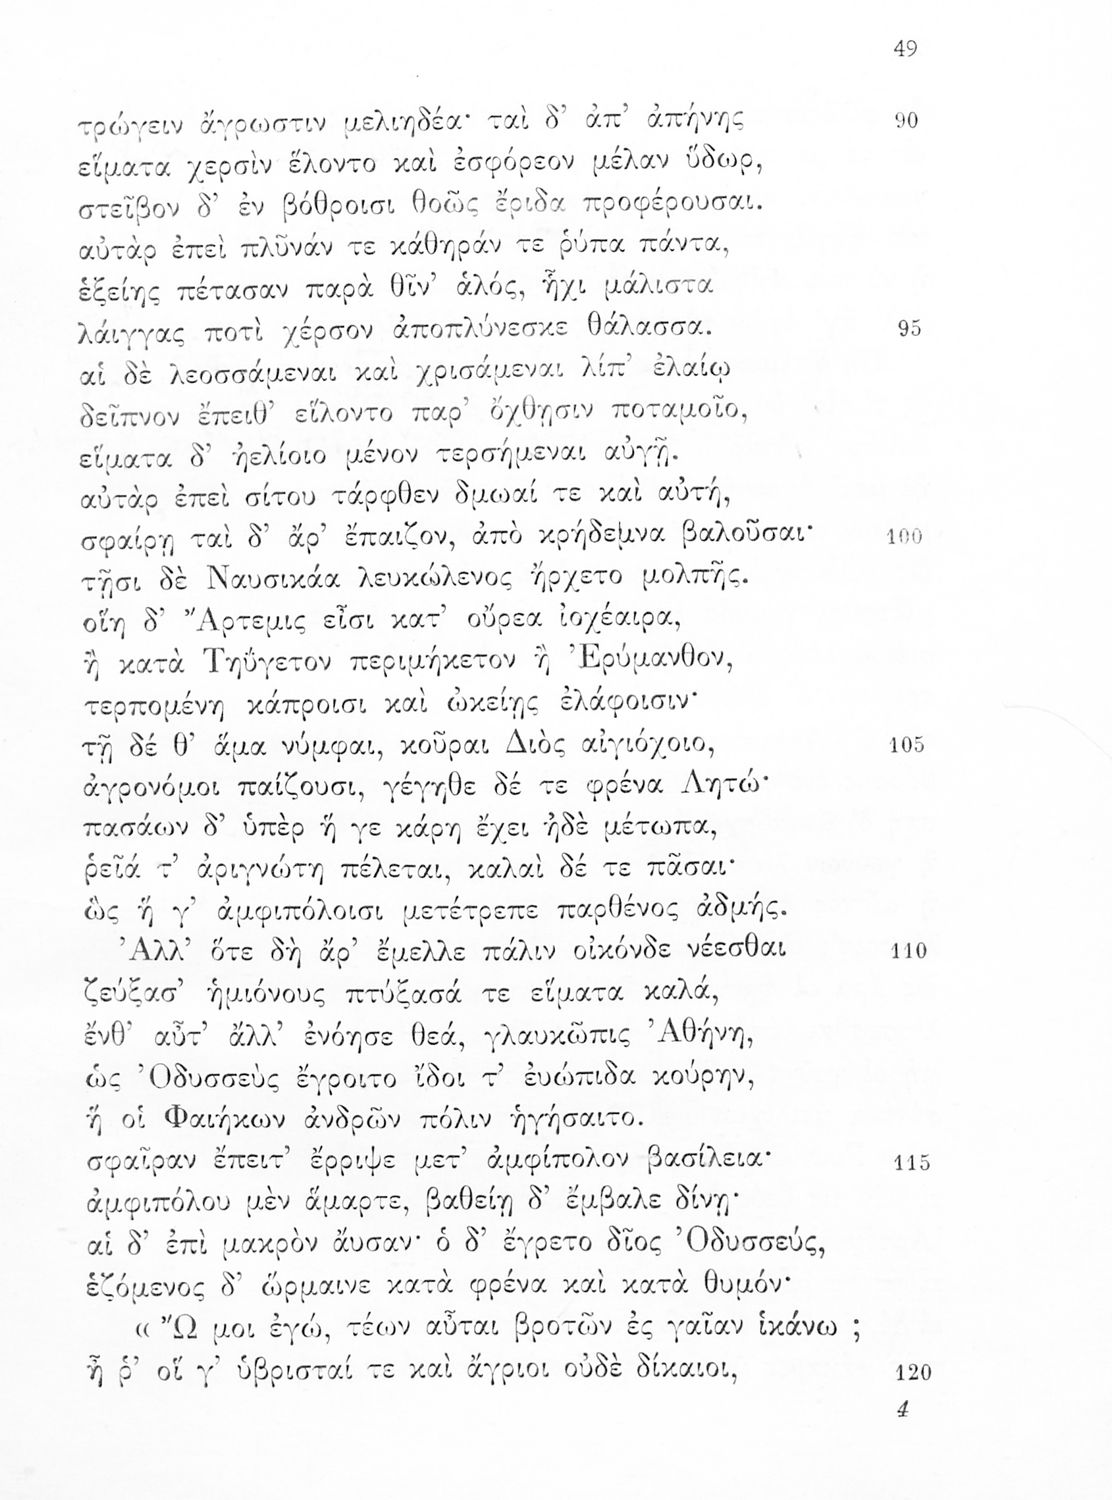 49
τρώγειν ἄγρωστιν μελιηδέα· ταὶ δ’ ἀπ’ ἀπήνης 90
εἵματα χερσὶν ἕλοντο καὶ ἐσφόρεον μέλαν ὕδωρ,
στεῖβον δ’ ἐν βόθροισι θοῶς ἔριδα προφέρουσαι.
αὐτὰρ ἐπεὶ πλῦνάν τε κάθηράν τε ῥύπα πάντα,
ἑξείης πέτασαν παρὰ θῖν’ ἁλός, ἧχι μάλιστα
λάιγγας ποτὶ χέρσον ἀποπλύνεσκε θάλασσα. 95
αἱ δὲ λεοσσάμεναι καὶ χρισάμεναι λίπ’ ἐλαίῳ
δεῖπνον ἔπειθ’ εἵλοντο παρ’ ὄχθῃσιν ποταμοῖο,
εἵματα δ’ ἠελίοιο μένον τερσήμεναι αὐγῇ.
αὐτὰρ ἐπεὶ σίτου τάρφθεν δμωαί τε καὶ αὐτή,
σφαίρῃ ταὶ δ’ ἄρ’ ἔπαιζον, ἀπὸ κρήδεμνα βαλοῦσαι· 100
τῇσι δὲ Ναυσικάα λευκώλενος ἤρχετο μολπῆς.
οἵη δ’ Ἄρτεμις εἶσι κατ’ οὔρεα ἰοχέαιρα,
ἢ κατὰ Τηΰγετον περιμήκετον ἢ Ἐρύμανθον,
τερπομένη κάπροισι καὶ ὠκείῃς ἐλάφοισιν·
τῇ δέ θ’ ἅμα νύμφαι, κοῦραι Διὸς αἰγιόχοιο, 105
ἀγρονόμοι παίζουσι, γέγηθε δέ τε φρένα Λητώ·
πασάων δ’ ὑπὲρ ἥ γε κάρη ἔχει ἠδὲ μέτωπα,
ῥεῖά τ’ ἀριγνώτη πέλεται, καλαὶ δέ τε πᾶσαι·
ὣς ἥ γ’ ἀμφιπόλοισι μετέτρεπε παρθένος ἀδμής.
Ἀλλ’ ὅτε δὴ ἄρ’ ἔμελλε πάλιν οἰκόνδε νέεσθαι 110
ζεύξασ’ ἡμιόνους πτύξασά τε εἵματα καλά,
ἔνθ’ αὖτ’ ἄλλ’ ἐνόησε θεά, γλαυκῶπις Ἀθήνη,
ὡς Ὀδυσσεὺς ἔγροιτο ἴδοι τ’ ἐυώπιδα κούρην,
ἥ οἱ Φαιήκων ἀνδρῶν πόλιν ἡγήσαιτο.
σφαῖραν ἔπειτ’ ἔρριψε μετ’ ἀμφίπολον βασίλεια· 115
ἀμφιπόλου μὲν ἅμαρτε, βαθείῃ δ’ ἔμβαλε δίνῃ·
αἱ δ’ ἐπὶ μακρὸν ἄυσαν· ὁ δ’ ἔγρετο δῖος Ὀδυσσεύς,
ἑζόμενος δ’ ὥρμαινε κατὰ φρένα καὶ κατὰ θυμόν·
« Ὤ μοι ἐγώ, τέων αὖται βροτῶν ἐς γαῖαν ἱκάνω ;
ἦ ῥ’ οἵ γ’ ὑβρισταί τε καὶ ἄγριοι οὐδὲ δίκαιοι, 120
4